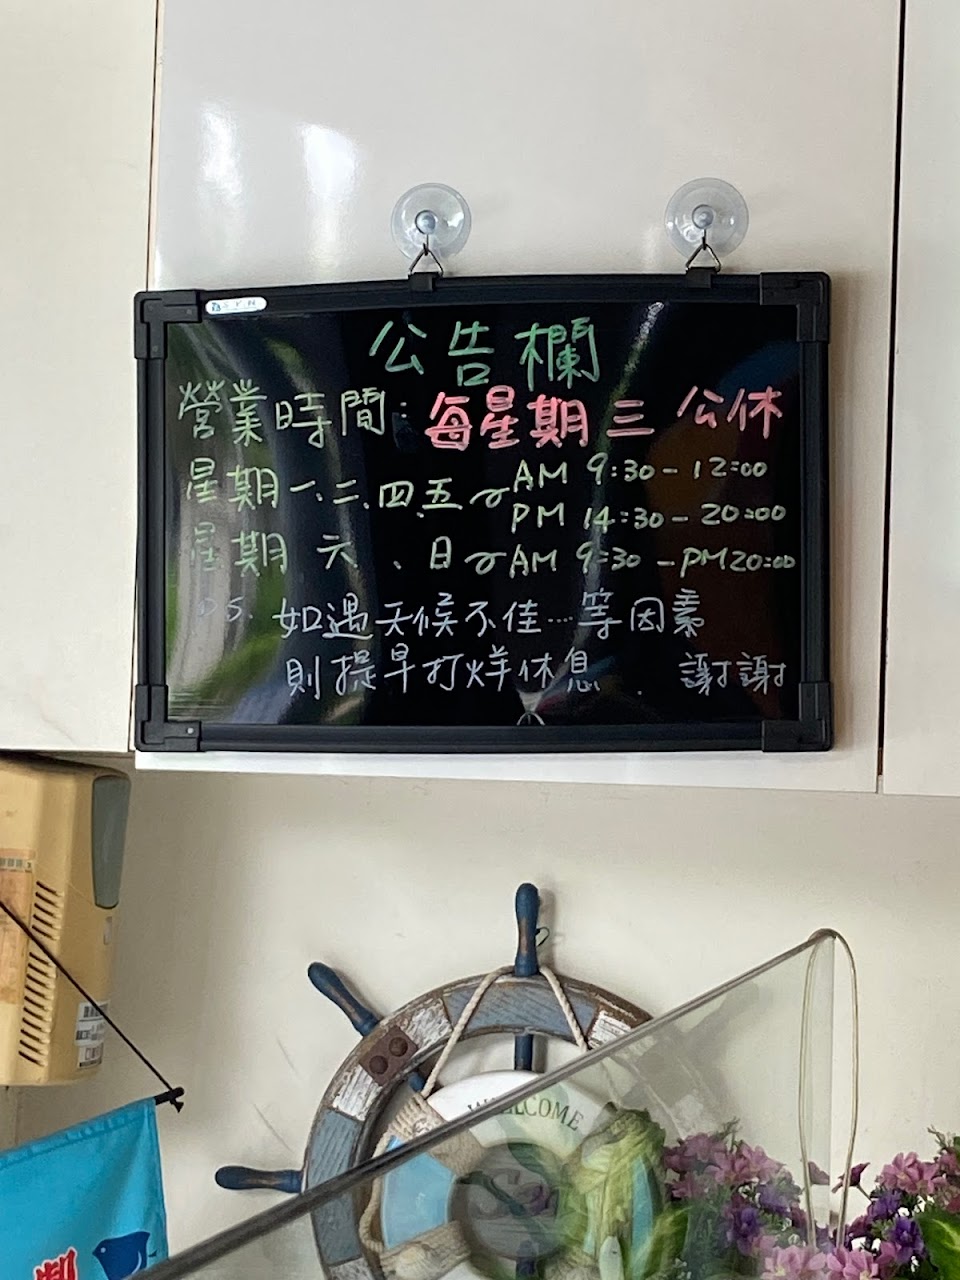 公告欄
營業時間：每星期三公休
星期一、二、四、五~AM 9:30-12:00
PM 14:30-20:00
星期六、日~AM 9:30-PM20:00
PS. 如遇天候不佳…等因素
則提早打烊休息．謝謝
WELCOME